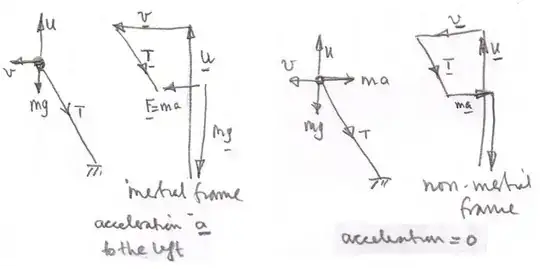 v
U
U
v
T
U
v
mg
T
F=ma
mg
inertial frame
acceleration a
to the left
v
U
v
ma
mg
T
T
U
ma
non-inertial
frame
acceleration = 0